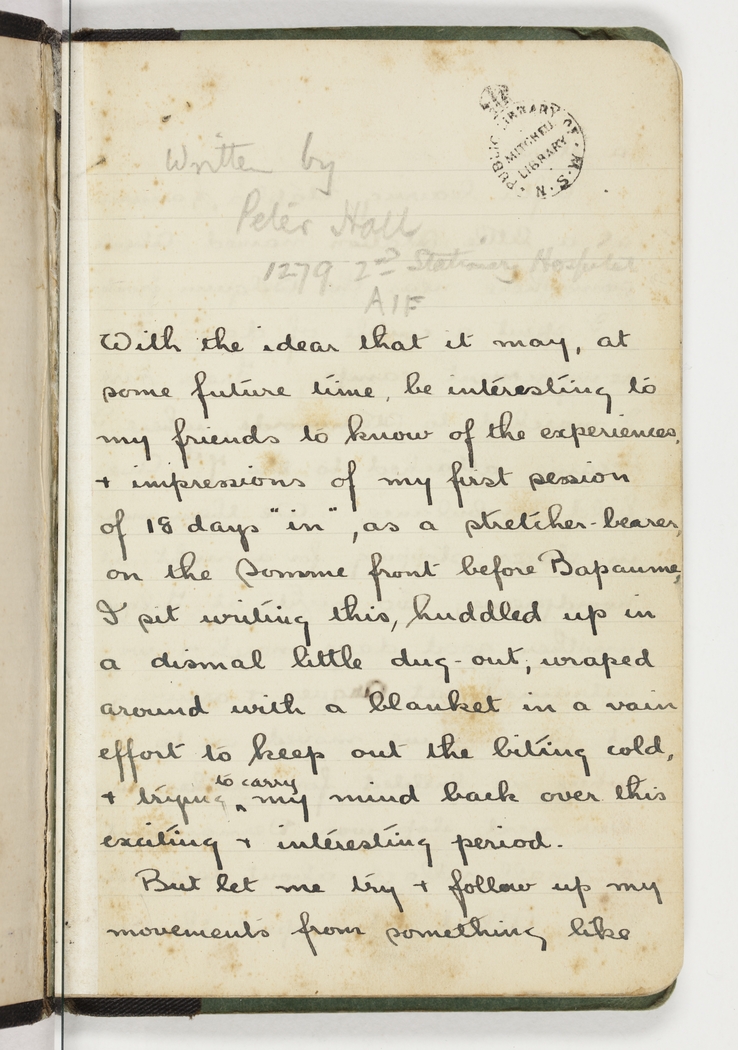 Written by
Peter Hall
1279 2nd Stationary Hospital
AIF
PUBLIC LIBRARY OF N.S.W.
MITCHELL
LIBRARY
With the idear that it may, at
some future time, be interesting to
my friends to know of the experiences,
+ impressions of my first session
of 18 days "in", as a stretcher-bearer,
on the Somme front before Bapaume,
I sit writing this, huddled up in
a dismal little dug-out, wraped
around with a blanket in a vain
effort to keep out the biting cold,
+ trying to carry my mind back over this
exciting + interesting period.
But let me try + follow up my
movements from something like